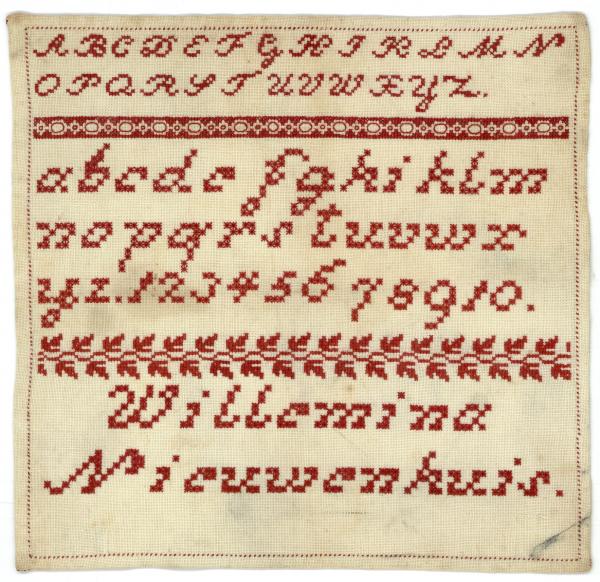 A B C D E F G H I K L M N
O P Q R S T U V W X Y Z.
a b c d e f g h i k l m
n o p q r s t u v w x
y z . 1 2 3 4 5 6 7 8 9 10.
Willemina
Nieuwenhuis.